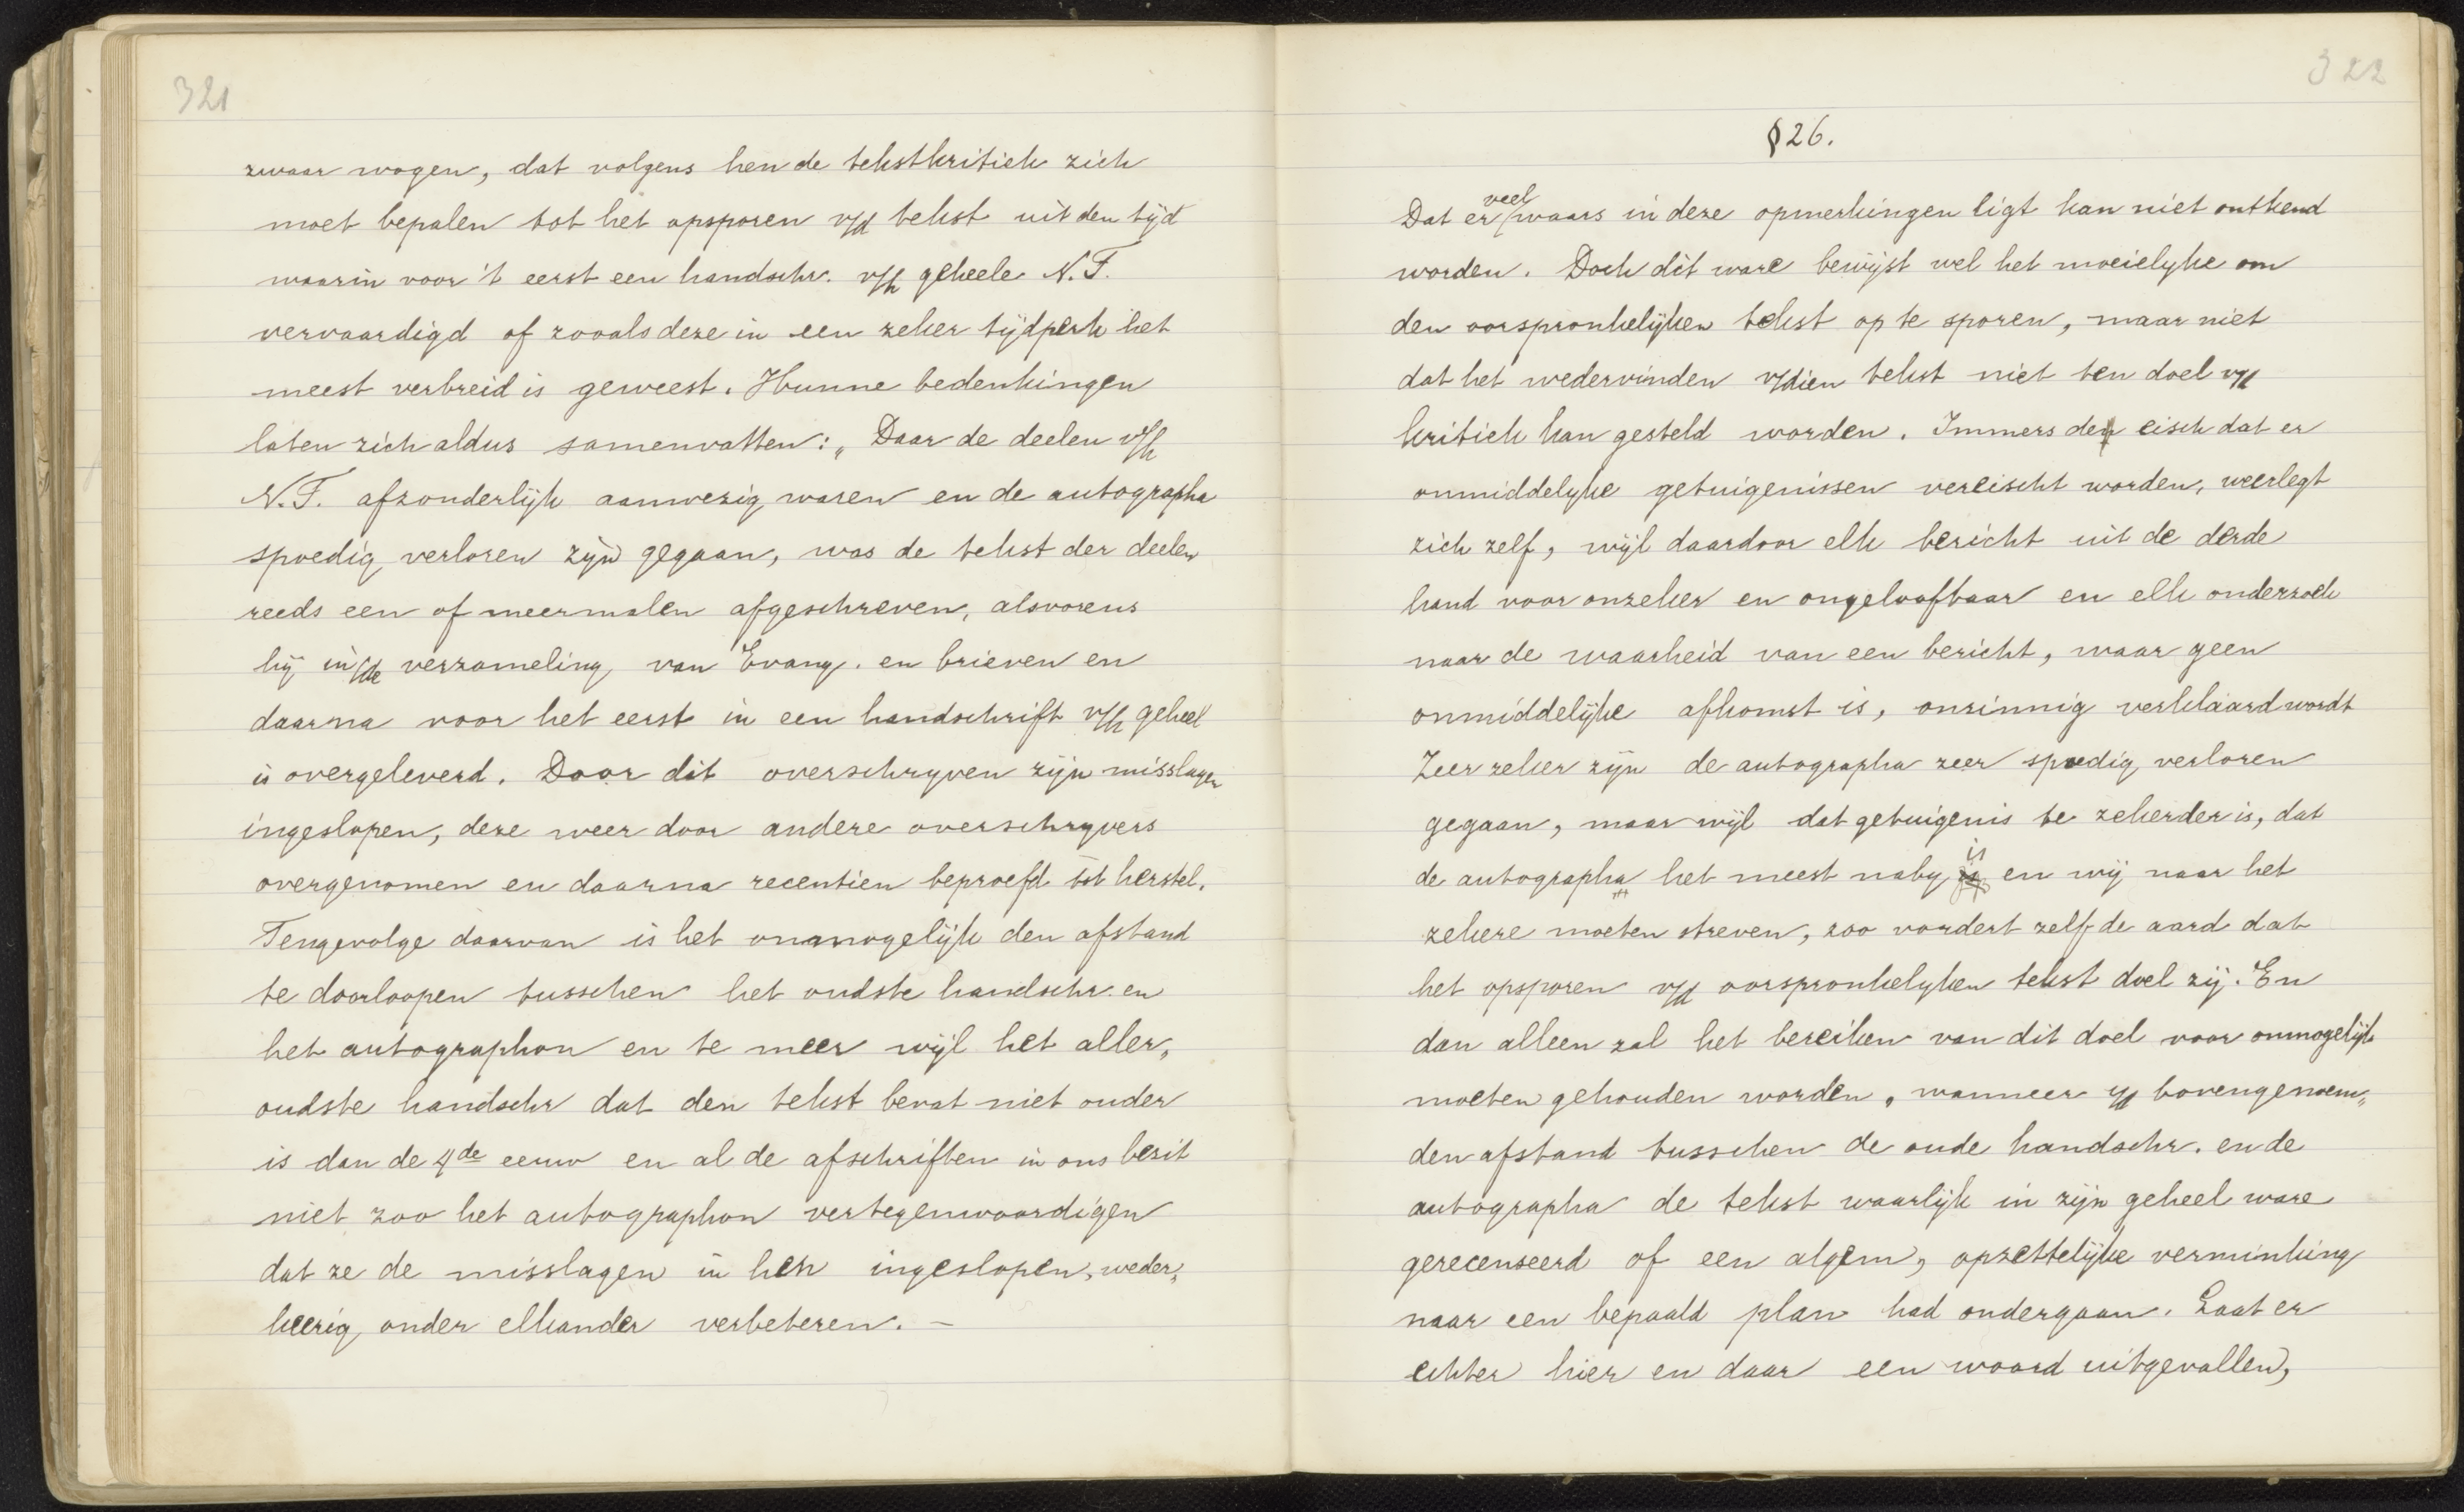 321
zwaar wogen, dat volgens hen de tekstkritiek zich
moet bepalen tot het opsporen v/d tekst uit den tijd
waarin voor 't eerst een handschr. v/h geheele N.T.
vervaardigd of zooals deze in een zeker tijdperk het
meest verbreid is geweest. Hunne bedenkingen
laten zich aldus samenvatten: „Daar de deelen v/h
N.T. afzonderlijk aanwezig waren en de autographa
spoedig verloren zijn gegaan, was de tekst der deelen
reeds een of meermalen afgeschreven, alsvorens
hij in/de verzameling van Evang. en brieven en
daarna voor het eerst in een handschrift v/h geheel
is overgeleverd. Door dit overschryven zijn misslagen
ingeslopen, deze weer door andere overschryvers
overgenomen en daarna recentien beproefd tot herstel.
Tengevolge daarvan is het onmogelijk den afstand
te doorloopen tusschen het oudste handschr. en
het autographon en te meer wijl het aller„
oudste handschr dat den tekst bevat niet ouder
is dan de 4de eeuw en al de afschriften in ons bezit
niet zoo het autographon vertegenwoordigen
dat ze de misslagen in hen ingeslopen, weder„
keerig onder elkander verbeteren. –
322
§26.
Dat er veel waars in deze opmerkingen ligt kan niet ontkend
worden. Doch dit ware bewijst wel het moeielyke om
den oorspronkelijken tekst op te sporen, maar niet
dat het wedervinden v/dien tekst niet ten doel v/d
kritiek kan gesteld worden. Immers de eisch dat er
onmiddelyke getuigenissen vereischt worden, weerlegt
zich zelf, wijl daardoor elk bericht uit de derde
hand voor onzeker en ongeloofbaar en elk onderzoek
naar de waarheid van een bericht, waar geen
onmiddelijke afkomst is, onzinnig verklaard wordt
Zeer zeker zijn de autographa zeer spoedig verloren
gegaan, maar wijl dat getuigenis te zekerder is, dat
de autographa het meest naby is en wij naar het
zekere moeten streven, zoo vordert zelf de aard dat
het opsporen v/d oorspronkelyken tekst doel zij. En
dan alleen zal het bereiken van dit doel voor onmogelijk
moeten gehouden worden, wanneer i/d bovengenoem„
den afstand tusschen de oude handschr. en de
autographa de tekst waarlijk in zijn geheel ware
gerecenseerd of een algem, opzettelijke verminking
naar een bepaald plan had ondergaan. Laat er
echter hier en daar een woord uitgevallen,